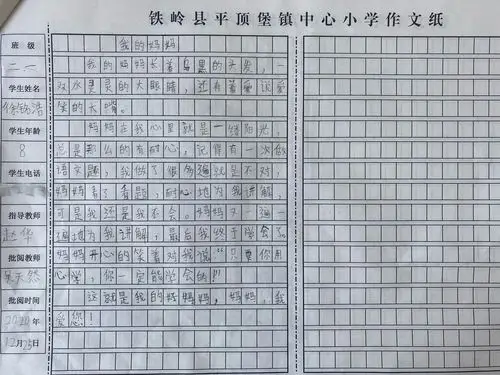 铁岭县平顶堡镇中心小学作文纸
班级
二一
学生姓名
学生年龄
8
学生电话
指导教师
赵华
批阅教师
吴天然
批阅时间
2020年
12月25日
我的妈妈
我的妈妈长着乌黑的头发，一
双水灵灵的大眼睛，还有着爱说爱
笑的大嘴。
妈妈在我心里就是一缕阳光，
总是那么的有耐心，记得有一次做
语文题，我做了很多遍就是不对，
妈妈看了看题，耐心地为我讲解，
可是我还是我不会。妈妈又一遍一
遍地为我讲解，最后我终于学会了。
妈妈开心的笑着对我说“只要你用
心学，你一定能学会的！”
这就是我的妈妈，妈妈，我
爱您！